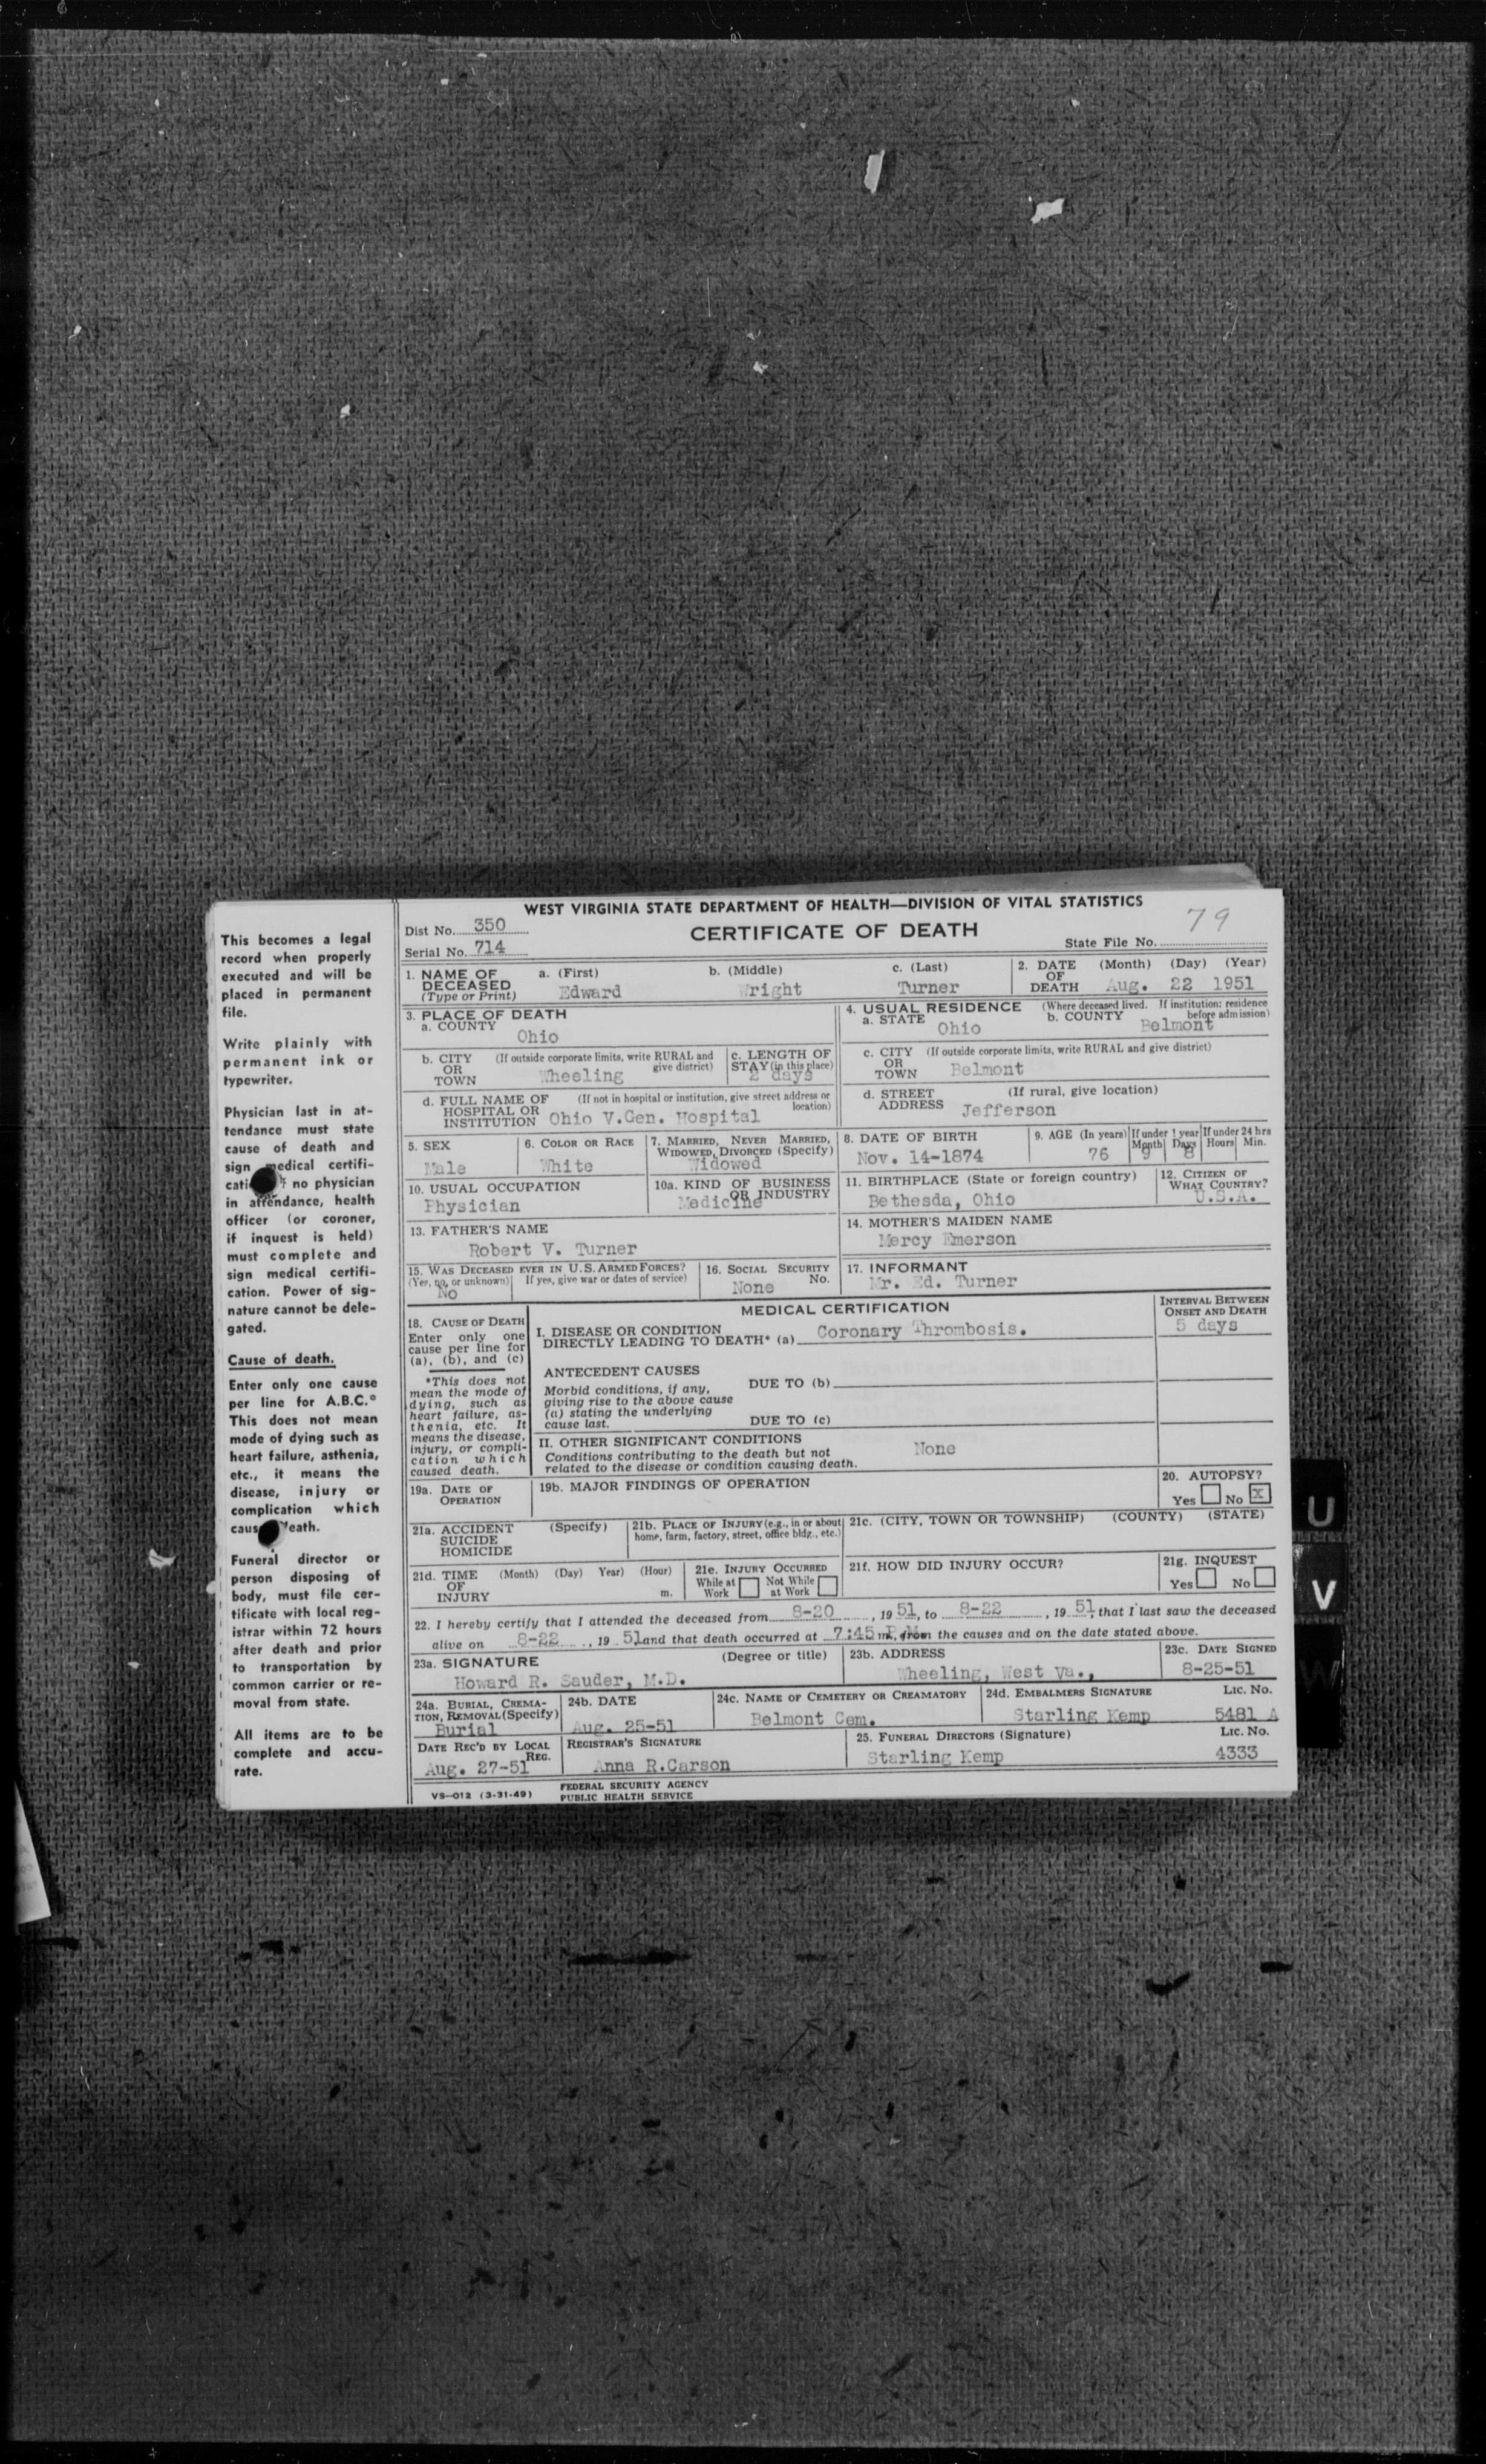 WEST VIRGINIA STATE DEPARTMENT OF HEALTH—DIVISION OF VITAL STATISTICS
Dist No. 350
CERTIFICATE OF DEATH
79
Serial No. 714
State File No.
1. NAME OF DECEASED (Type or Print) a. (First) Edward b. (Middle) Wright c. (Last) Turner
2. DATE OF DEATH (Month) (Day) (Year) Aug. 22 1951
3. PLACE OF DEATH
a. COUNTY Ohio
4. USUAL RESIDENCE (Where deceased lived. If institution: residence before admission)
a. STATE Ohio b. COUNTY Belmont
b. CITY OR TOWN (If outside corporate limits, write RURAL and give district) Wheeling
c. LENGTH OF STAY (in this place) 2 days
c. CITY OR TOWN (If outside corporate limits, write RURAL and give district) Belmont
d. FULL NAME OF HOSPITAL OR INSTITUTION (If not in hospital or institution, give street address or location) Ohio V.Gen. Hospital
d. STREET ADDRESS (If rural, give location) Jefferson
5. SEX Male
6. COLOR OR RACE White
7. MARRIED, NEVER MARRIED, WIDOWED, DIVORCED (Specify) Widowed
8. DATE OF BIRTH Nov. 14-1874
9. AGE (In years) 76 If under 1 year Month 9 Days 8 If under 24 hrs Hours Min.
10. USUAL OCCUPATION Physician
10a. KIND OF BUSINESS OR INDUSTRY Medicine
11. BIRTHPLACE (State or foreign country) Bethesda, Ohio
12. CITIZEN OF WHAT COUNTRY? U.S.A.
13. FATHER'S NAME Robert V. Turner
14. MOTHER'S MAIDEN NAME Mercy Emerson
15. WAS DECEASED EVER IN U.S. ARMED FORCES? (Yes, no, or unknown) If yes, give war or dates of service) No
16. SOCIAL SECURITY No. None
17. INFORMANT Mr. Ed. Turner
MEDICAL CERTIFICATION
INTERVAL BETWEEN ONSET AND DEATH
18. CAUSE OF DEATH
Enter only one cause per line for (a), (b), and (c)
*This does not mean the mode of dying, such as heart failure, asthenia, etc. It means the disease, injury, or complication which caused death.
I. DISEASE OR CONDITION DIRECTLY LEADING TO DEATH* (a) Coronary Thrombosis. 5 days
ANTECEDENT CAUSES
Morbid conditions, if any, giving rise to the above cause (a) stating the underlying cause last.
DUE TO (b)
DUE TO (c)
II. OTHER SIGNIFICANT CONDITIONS
Conditions contributing to the death but not related to the disease or condition causing death. None
19a. DATE OF OPERATION
19b. MAJOR FINDINGS OF OPERATION
20. AUTOPSY? Yes No X
21a. ACCIDENT SUICIDE HOMICIDE (Specify)
21b. PLACE OF INJURY (e.g., in or about home, farm, factory, street, office bldg., etc.)
21c. (CITY, TOWN OR TOWNSHIP) (COUNTY) (STATE)
21d. TIME OF INJURY (Month) (Day) Year) (Hour) m.
21e. INJURY OCCURRED While at Work Not While at Work
21f. HOW DID INJURY OCCUR?
21g. INQUEST Yes No
22. I hereby certify that I attended the deceased from 8-20, 19 51, to 8-22, 19 51 that I last saw the deceased
alive on 8-22, 19 51 and that death occurred at 7:45 P.M. m., from the causes and on the date stated above.
23a. SIGNATURE (Degree or title) Howard R. Sauder, M.D.
23b. ADDRESS Wheeling, West Va.,
23c. DATE SIGNED 8-25-51
24a. BURIAL, CREMATION, REMOVAL (Specify) Burial
24b. DATE Aug. 25-51
24c. NAME OF CEMETERY OR CREAMATORY Belmont Cem.
24d. EMBALMERS SIGNATURE Starling Kemp LIC. NO. 5481 A
DATE REC'D BY LOCAL REG. Aug. 27-51
REGISTRAR'S SIGNATURE Anna R.Carson
25. FUNERAL DIRECTORS (Signature) Starling Kemp LIC. NO. 4333
VS—012 (3-31-49)
FEDERAL SECURITY AGENCY
PUBLIC HEALTH SERVICE
This becomes a legal
record when properly
executed and will be
placed in permanent
file.
Write plainly with
permanent ink or
typewriter.
Physician last in at-
tendance must state
cause of death and
sign medical certifi-
cati f no physician
in attendance, health
officer (or coroner,
if inquest is held)
must complete and
sign medical certifi-
cation. Power of sig-
nature cannot be dele-
gated.
Cause of death.
Enter only one cause
per line for A.B.C.°
This does not mean
mode of dying such as
heart failure, asthenia,
etc., it means the
disease, injury or
complication which
caus death.
Funeral director or
person disposing of
body, must file cer-
tificate with local reg-
istrar within 72 hours
after death and prior
to transportation by
common carrier or re-
moval from state.
All items are to be
complete and accu-
rate.
U
V
W